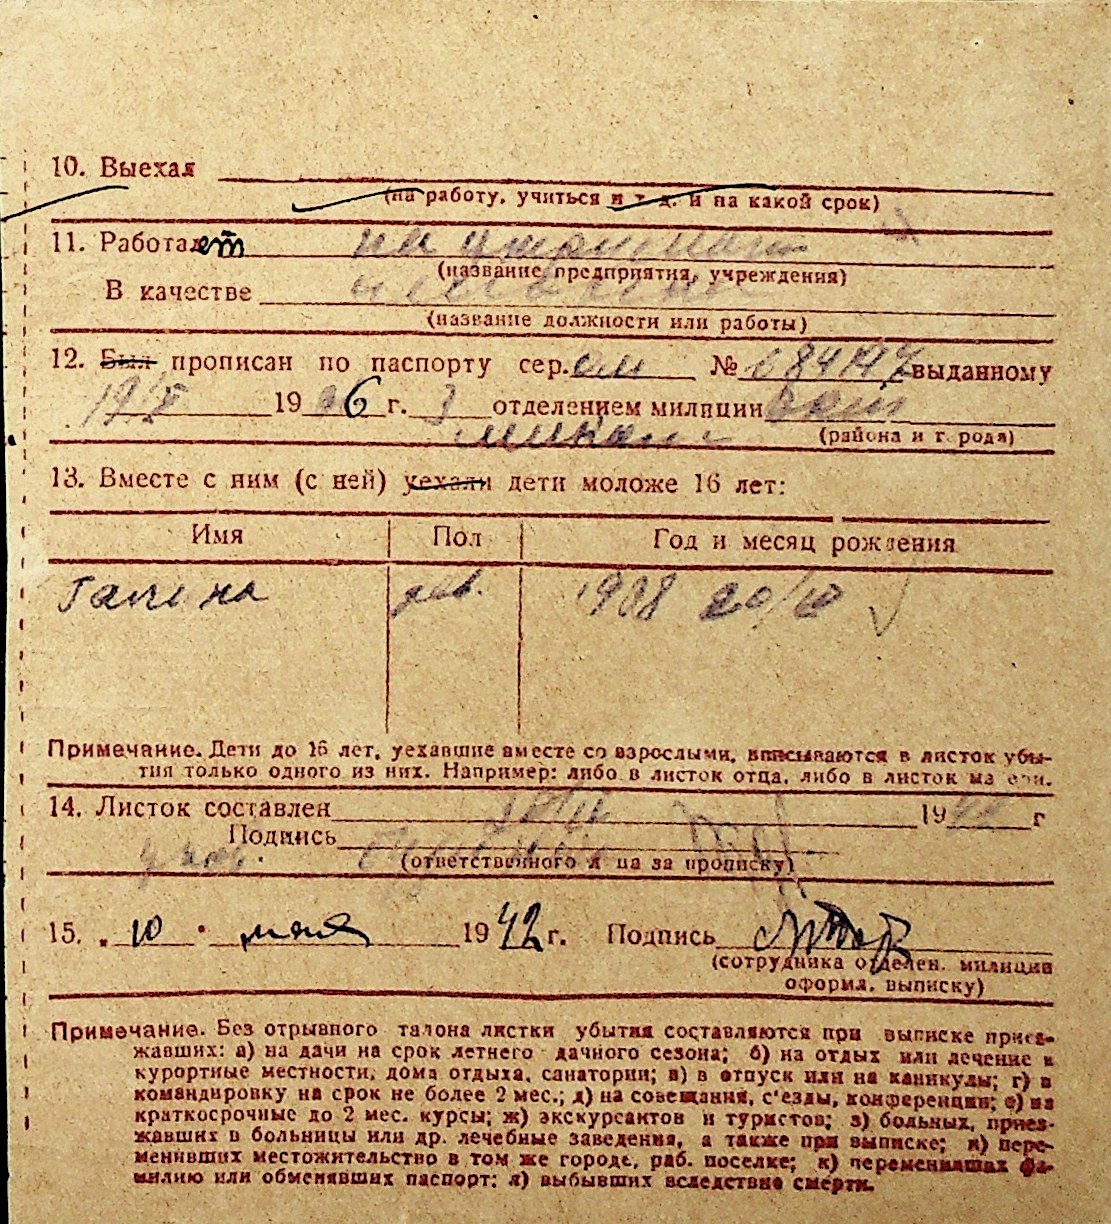 10. Выехал
(на работу, учиться и т. д. и на какой срок)
11. Работает на
(название предприятия, учреждения)
В качестве
(название должности или работы)
12. Был прописан по паспорту сер. № выданному
19 г. 3 отделением милиции
(района и города)
13. Вместе с ним (с ней) уехали дети моложе 16 лет:
Имя Пол Год и месяц рождения
Галина дев. 1938
Примечание. Дети до 16 лет, уехавшие вместе со взрослыми, вписываются в листок убы-
тия только одного из них. Например: либо в листок отца, либо в листок матери.
14. Листок составлен 1942 г
Подпись
(ответственного лица за прописку)
15. „10" мая 1942 г. Подпись
(сотрудника отделен. милиции
оформл. выписку)
Примечание. Без отрывного талона листки убытия составляются при выписке приез-
жавших: а) на дачи на срок летнего дачного сезона; б) на отдых или лечение в
курортные местности, дома отдыха, санатории; в) в отпуск или на каникулы; г) в
командировку на срок не более 2 мес.; д) на совещания, с'езды, конференции; е) на
краткосрочные до 2 мес. курсы; ж) экскурсантов и туристов; з) больных, приез-
жавших в больницы или др. лечебные заведения, а также при выписке; и) пере-
менивших местожительство в том же городе, раб. поселке; к) переменивших фа-
милию или обменявших паспорт; л) выбывших вследствие смерти.